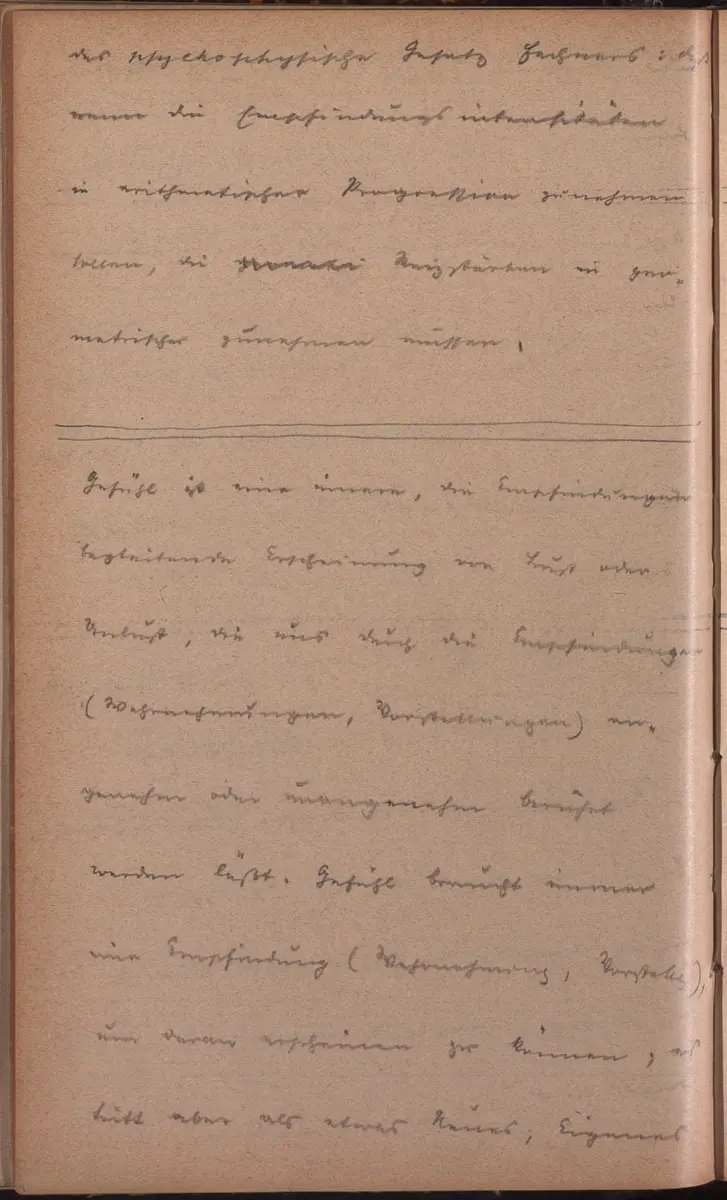 das psychophysische Gesetz Fechners: daß
wenn die Empfindungsintensitäten
in arithmetischer Progression zunehmen
sollen, die Reizstärken in geo-
metrischer zunehmen müssen.
Gefühl ist eine innere, die Empfindungen
begleitende Erscheinung von Lust oder
Unlust, die uns durch die Empfindungen
(Wahrnehmungen, Vorstellungen) an-
genehm oder unangenehm berührt
werden läßt. Gefühl braucht immer
eine Empfindung (Wahrnehmung, Vorstellg),
um daran erscheinen zu können, es
tritt aber als etwas Neues, Eigenes